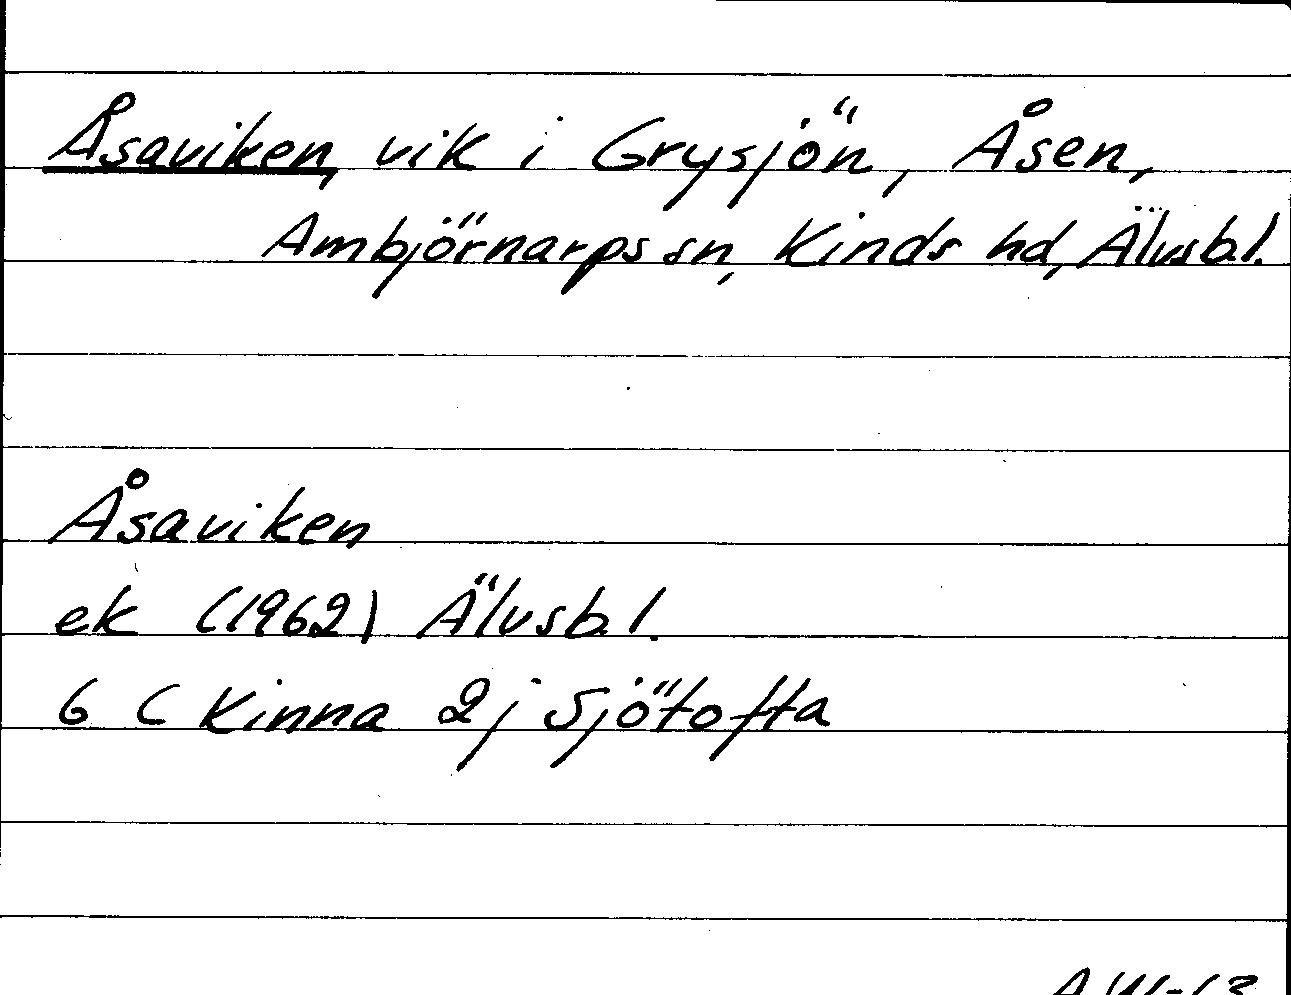 Åsaviken, vik i Grysjön, Åsen,
Ambjörnarps sn, Kinds hd, Älvsb.l.
Åsaviken
ek (1962) Älvsb.l.
6 C Kinna 2j Sjötofta